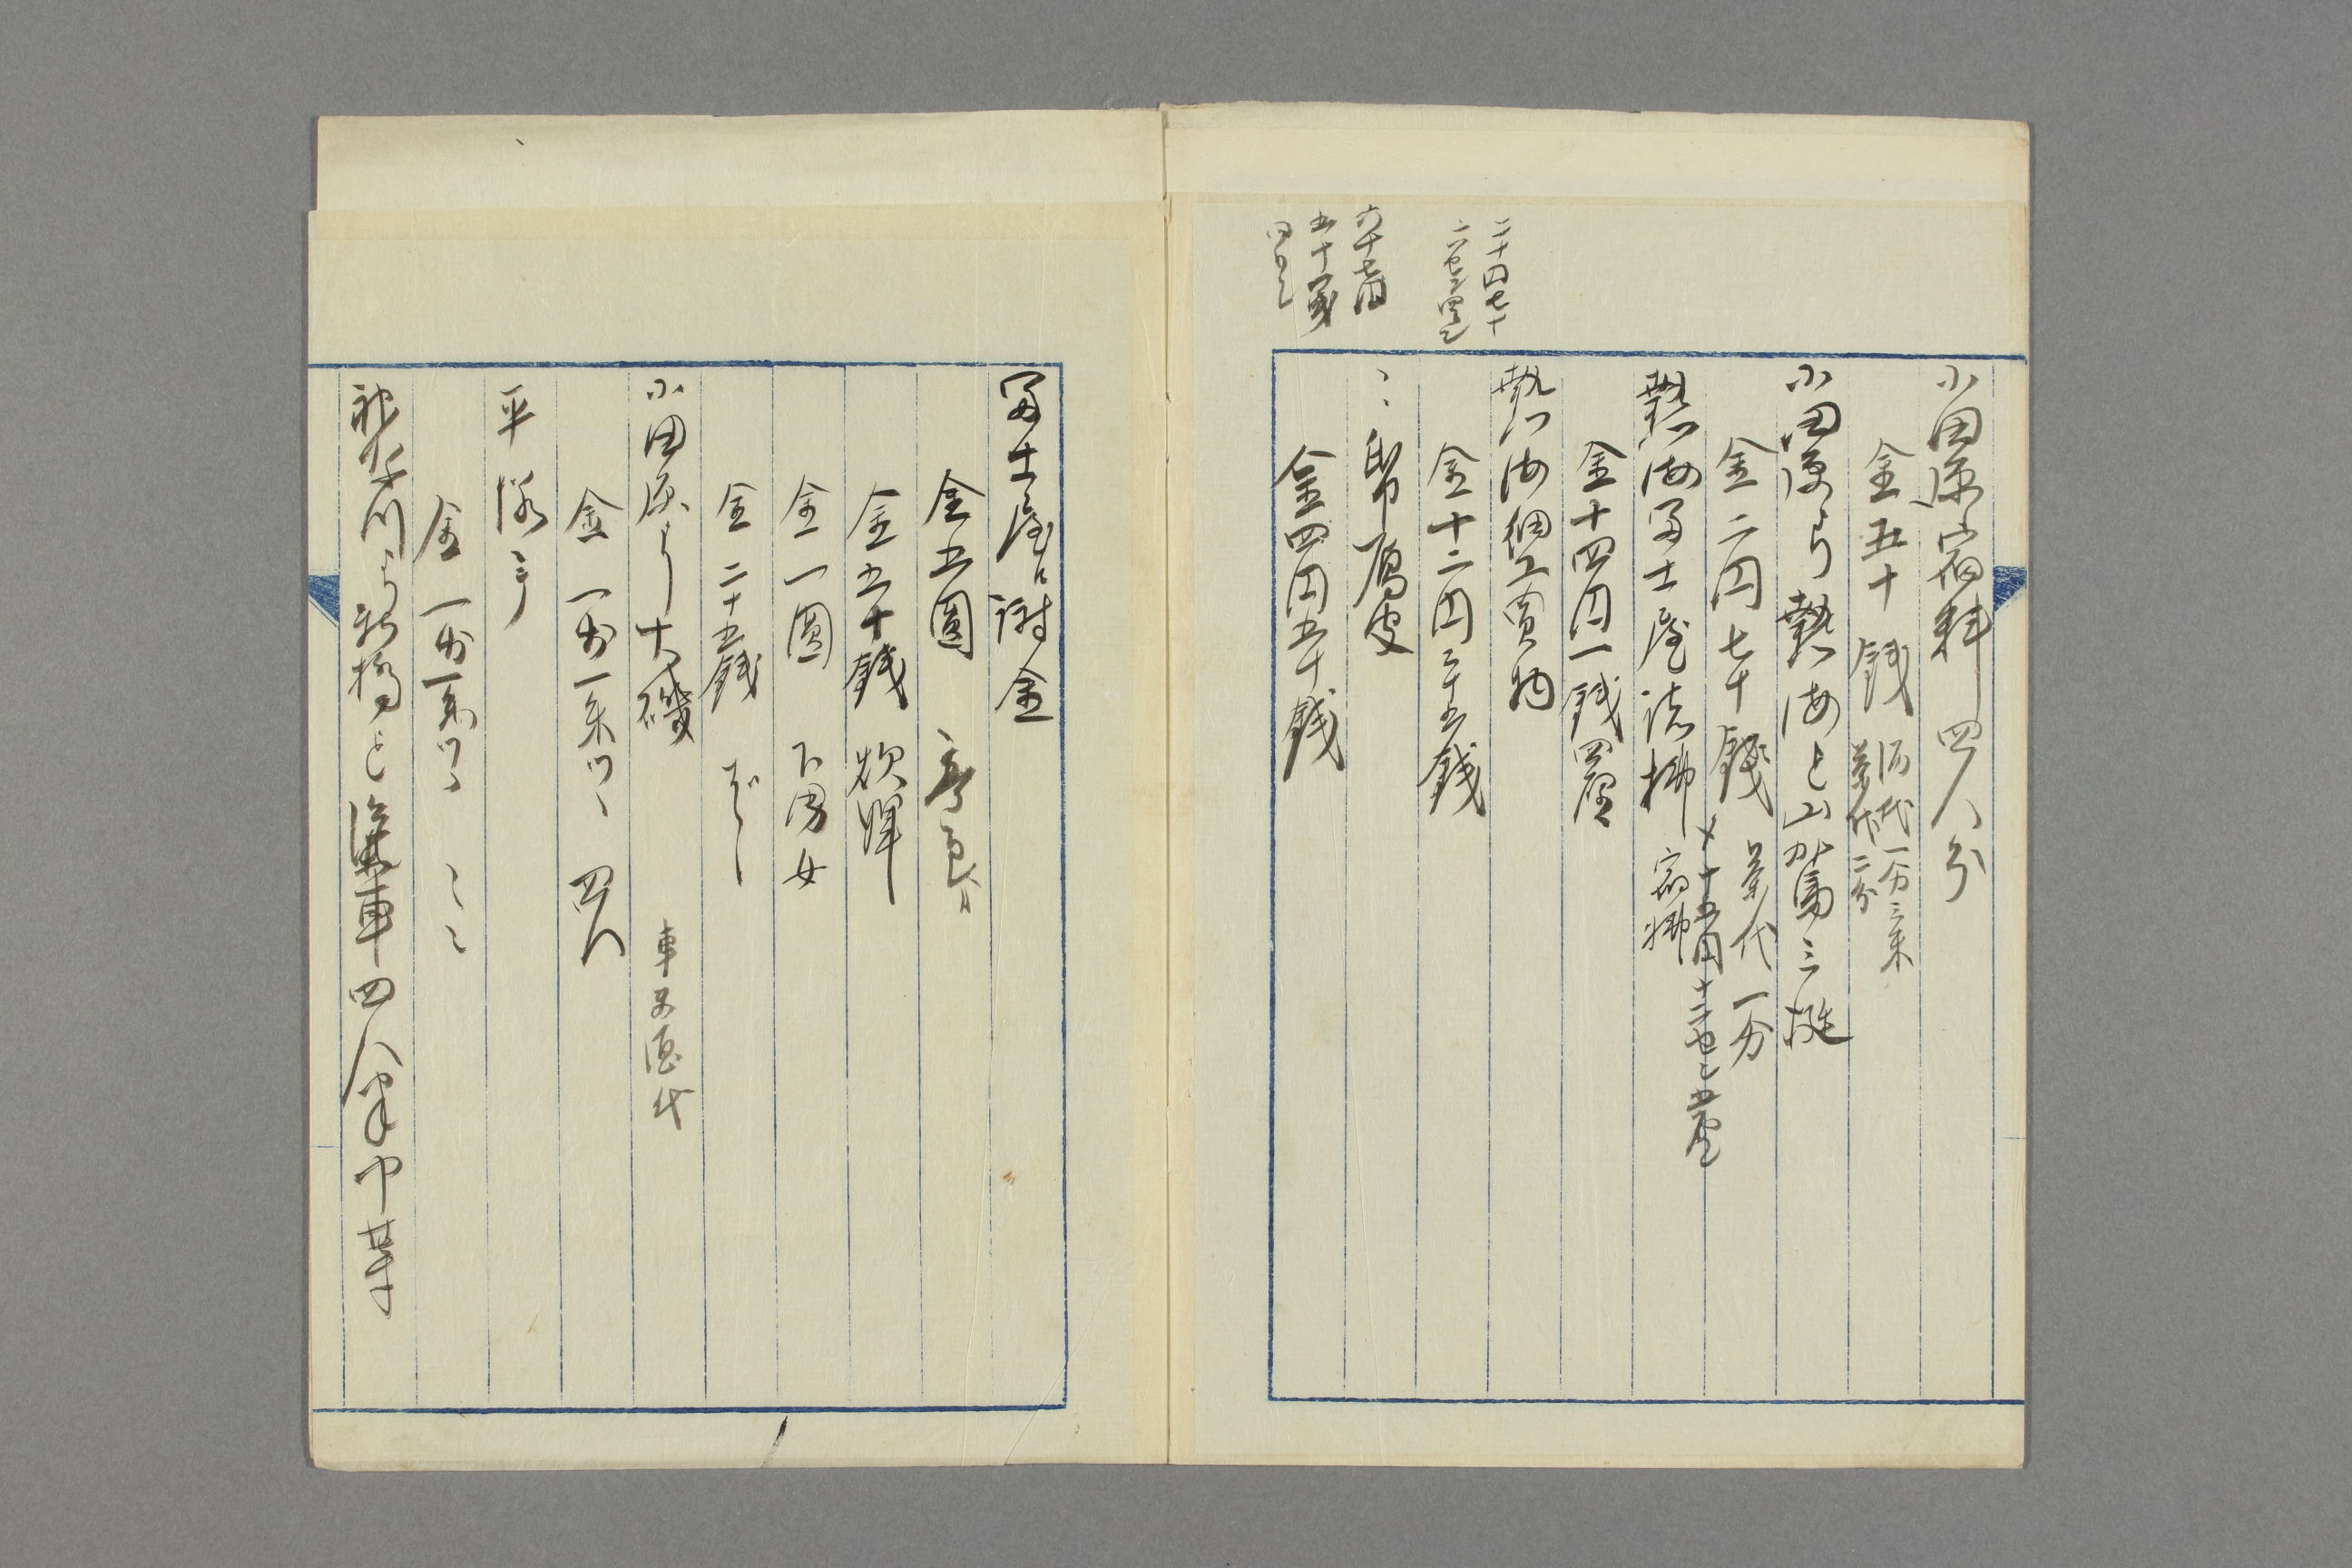 小田原宿料四人分
金五十銭 酒代一分三朱
茶代二分
小田原ゟ熱海迄山駕三挺
金二円七十銭 茶代一分
〆十五円十二セン五厘
熱海富士屋諸拂 宿拂
金十四円一銭四厘
熱海細工買物
金十二円三十五銭
〻 雁皮
金四円五十銭
二十四七十
六十七円
五十銭
富士屋江謝金
金五圓
金五十銭
金一圓 下男女
金二十五銭
小田原より大磯 車夫酒代
金一分一朱ツヽ 四人
平塚ゟ
金一分一朱ツヽ 〻〻
神奈川ゟ新橋迄滊車四人中等